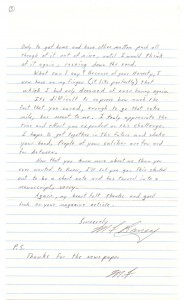 Only to get home and have other mother push all
though of it out of mine, until I would think
of it again, coming down the road.
What can I say! Because of your honesty, I
now have on my finger (it fits perfectly) that
which I had only dreamed of ever having again.
It's difficult to express how much the
fact that you cared, enough to go that extra
mile, has meant to me. I truly appreciate the
time and effort you expended on this challenge.
I hope to get together in the future and shake
your hand. People of your caliber are few and
far between.
Now that you know more about me than you
ever wanted to know, I'll let you go. This started
out to be a short note and has turned into a
Again, my heart felt thanks and good
luck on your magazine article.
Sincerely,
P.S.
Thanks for the newspaper